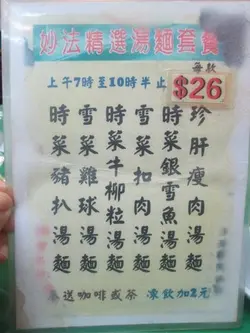 妙法精選湯麵套餐
上午7時至10時半止
每款
$26
珍肝瘦肉湯麵
時菜銀雪魚湯麵
雪菜扣肉湯麵
時菜牛柳粒湯麵
雪菜雞球湯麵
時菜豬扒湯麵
送咖啡或茶 凍飲加2元